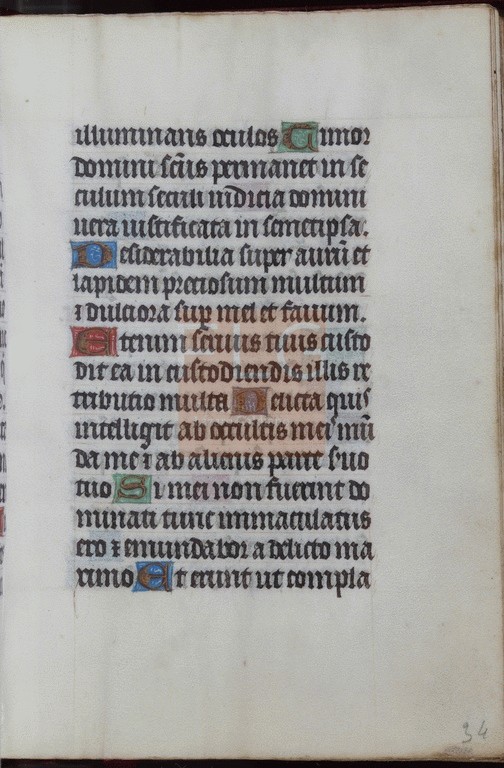 illuminans oculos Timor
domini scūs permanet in se
culum seculi iudicia domini
uera iustificata in semetipsa.
Desiderabilia super aurū et
lapidem preciosum multum
⁊ dulciora sup mel et fauum.
Etenim seruus tuus custo
dit ea in custodiendis illis re
tributio multa Delicta quis
intelligit ab occultis meis mū
da me ⁊ ab alienis parce seruo
tuo Si mei non fuerint do
minati tunc immaculatus
ero ⁊ emundabor a delicto ma
ximo Et erunt ut compla
34